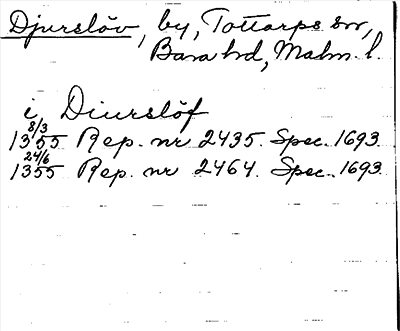 Djurslöv, by, Tottarps sn,
Bara hd, Malm. l.
i Diurslöf
8/3
1355 Rep. nr 2435. Spec. 1693
24/6
1355 Rep. nr 2464. Spec. 1693